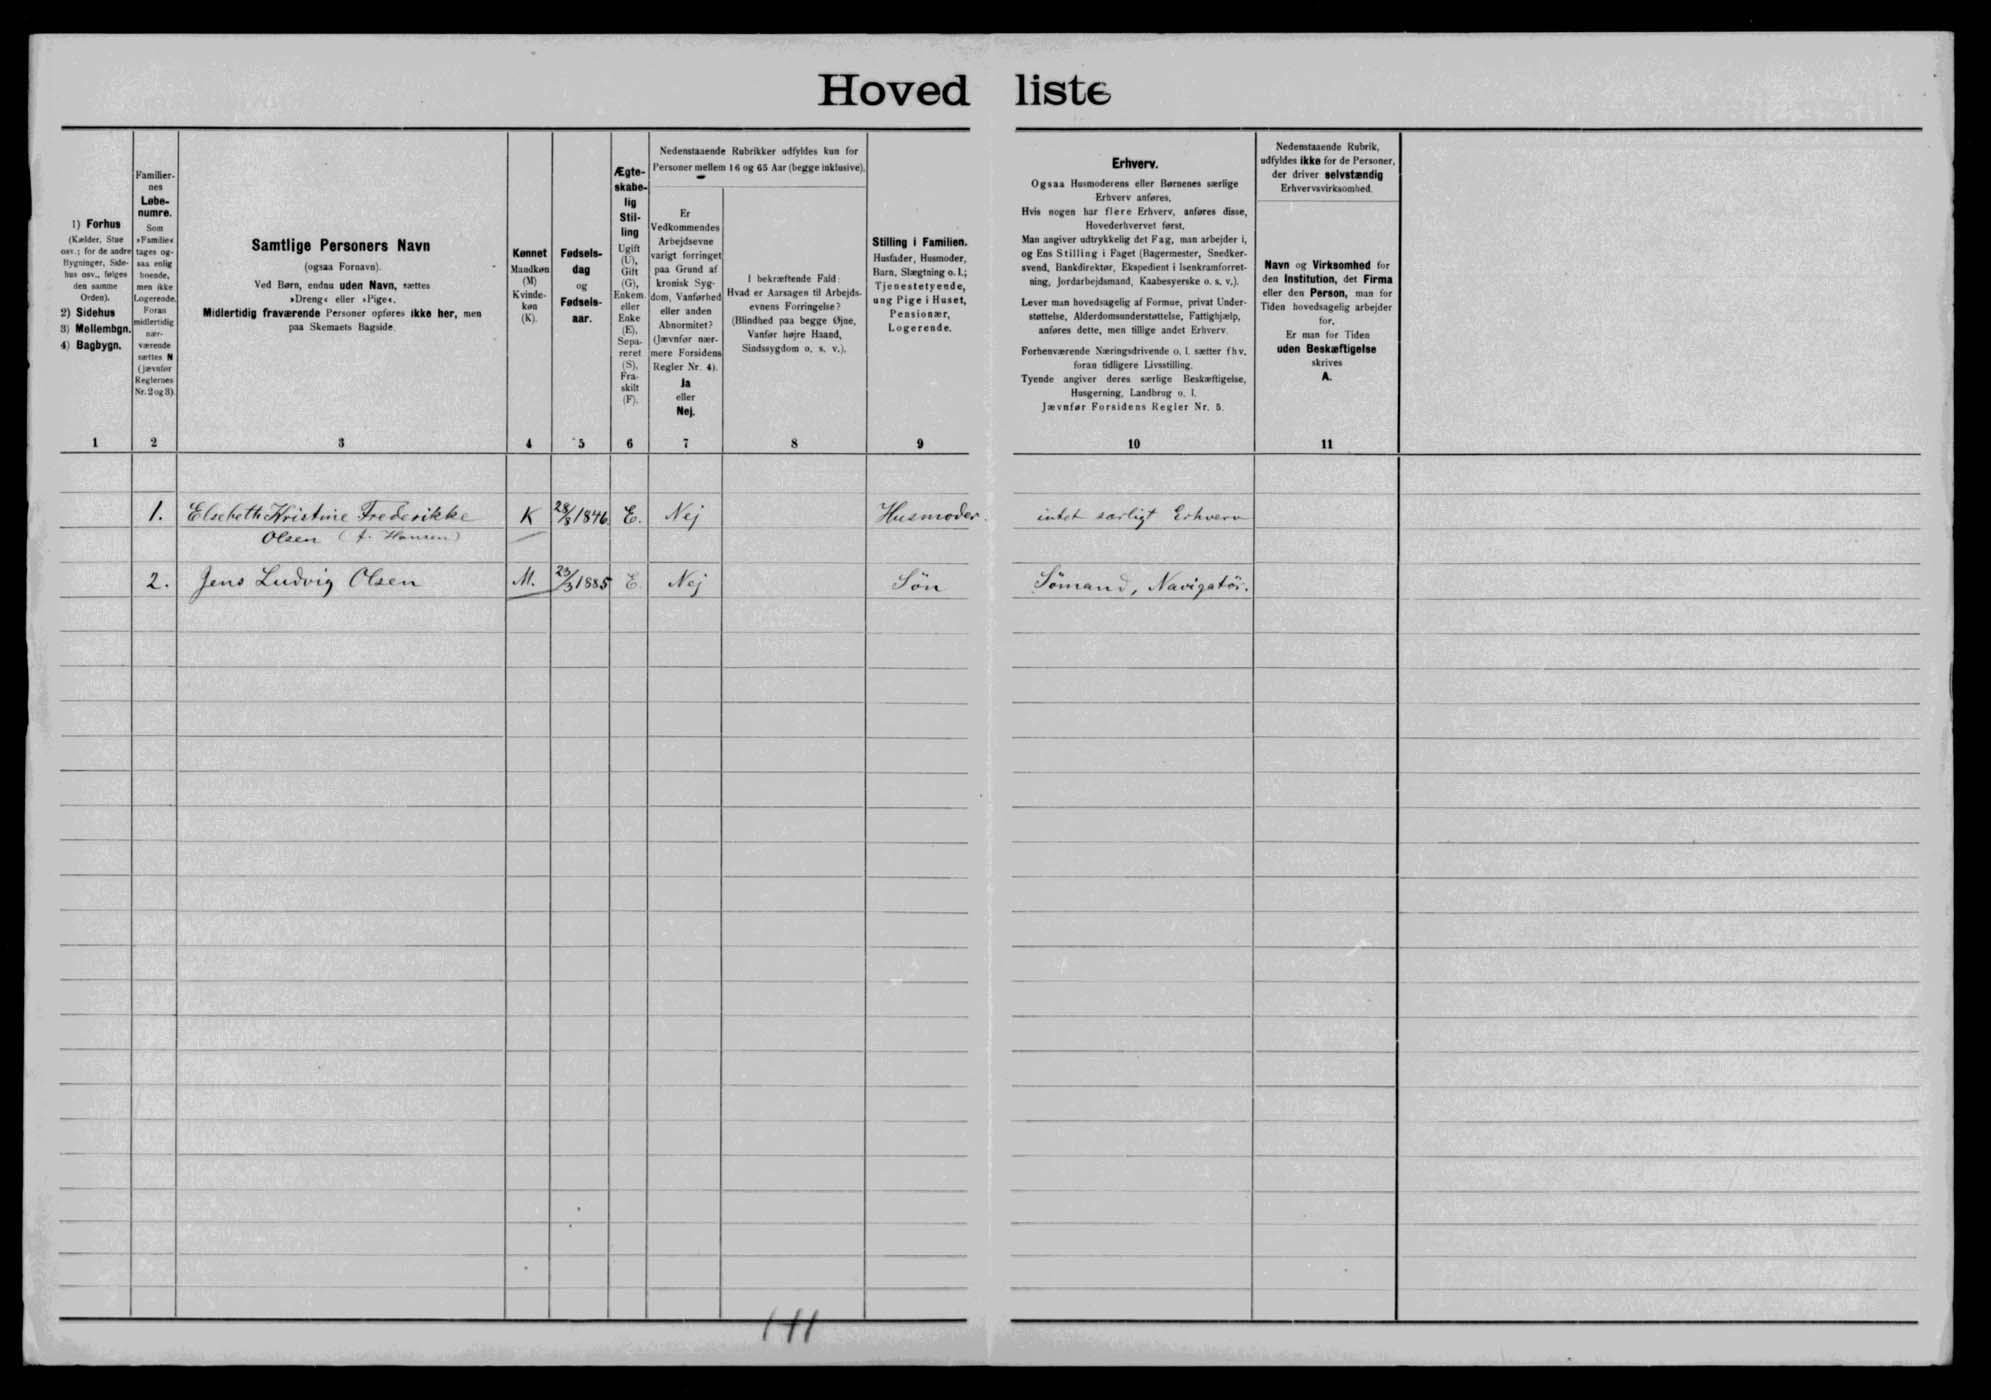 Hoved liste
1) Forhus
(Kælder, Stue
osv.; for de andre
Bygninger, Side-
hus osv., følges
den samme
Orden).
2) Sidehus
3) Mellembgn.
4) Bagbygn.
Familier-
nes
Løbe-
numre.
Som
»Familie«
tages og-
saa enlig
boende,
men ikke
Logerende.
Foran
midlertidig
nær-
værende
sættes N
(jævnfør
Reglernes
Nr. 2 og 3).
Samtlige Personers Navn
(ogsaa Fornavn).
Ved Børn, endnu uden Navn, sættes
»Dreng« eller »Pige«.
Midlertidig fraværende Personer opføres ikke her, men
paa Skemaets Bagside.
Kønnet
Mandkøn
(M)
Kvinde-
køn
(K).
Fødsels-
dag
og
Fødsels-
aar.
Ægte-
skabe-
lig
Stil-
ling
Ugift
(U),
Gift
(G),
Enkem.
eller
Enke
(E),
Sepa-
reret
(S),
Fra-
skilt
(F).
Nedenstaaende Rubrikker udfyldes kun for
Personer mellem 16 og 65 Aar (begge inklusive).
Er
Vedkommendes
Arbejdsevne
varigt forringet
paa Grund af
kronisk Syg-
dom, Vanførhed
eller anden
Abnormitet?
(Jævnfør nær-
mere Forsidens
Regler Nr. 4).
Ja
eller
Nej.
I bekræftende Fald:
Hvad er Aarsagen til Arbejds-
evnens Forringelse?
(Blindhed paa begge Øjne,
Vanfør højre Haand,
Sindssygdom o. s. v.).
Stilling i Familien.
Husfader, Husmoder,
Barn, Slægtning o. l.;
Tjenestetyende,
ung Pige i Huset,
Pensionær,
Logerende.
Erhverv.
Ogsaa Husmoderens eller Børnenes særlige
Erhverv anføres.
Hvis nogen har flere Erhverv, anføres disse,
Hovederhvervet først.
Man angiver udtrykkelig det Fag, man arbejder i,
og Ens Stilling i Faget (Bagermester, Snedker-
svend, Bankdirektør, Ekspedient i Isenkramforret-
ning, Jordarbejdsmand, Kaabesyerske o. s. v.).
Lever man hovedsagelig af Formue, privat Under-
støttelse, Alderdomsunderstøttelse, Fattighjælp,
anføres dette, men tillige andet Erhverv.
Forhenværende Næringsdrivende o. l. sætter fhv.
foran tidligere Livsstilling.
Tyende angiver deres særlige Beskæftigelse,
Husgerning, Landbrug o. l.
Jævnfør Forsidens Regler Nr. 5.
Nedenstaaende Rubrik,
udfyldes ikke for de Personer,
der driver selvstændig
Erhvervsvirksomhed.
Navn og Virksomhed for
den Institution, det Firma
eller den Person, man for
Tiden hovedsagelig arbejder
for.
Er man for Tiden
uden Beskæftigelse
skrives
A.
1 2 3 4 5 6 7 8 9 10 11
1. Elsebeth Kristine Frederikke K 28/8 1846 E. Nej Husmoder. intet særligt Erhverv
Olsen (f. Hansen)
2. Jens Ludvig Olsen M. 23/3 1885 E. Nej Søn Sömand, Navigatör.